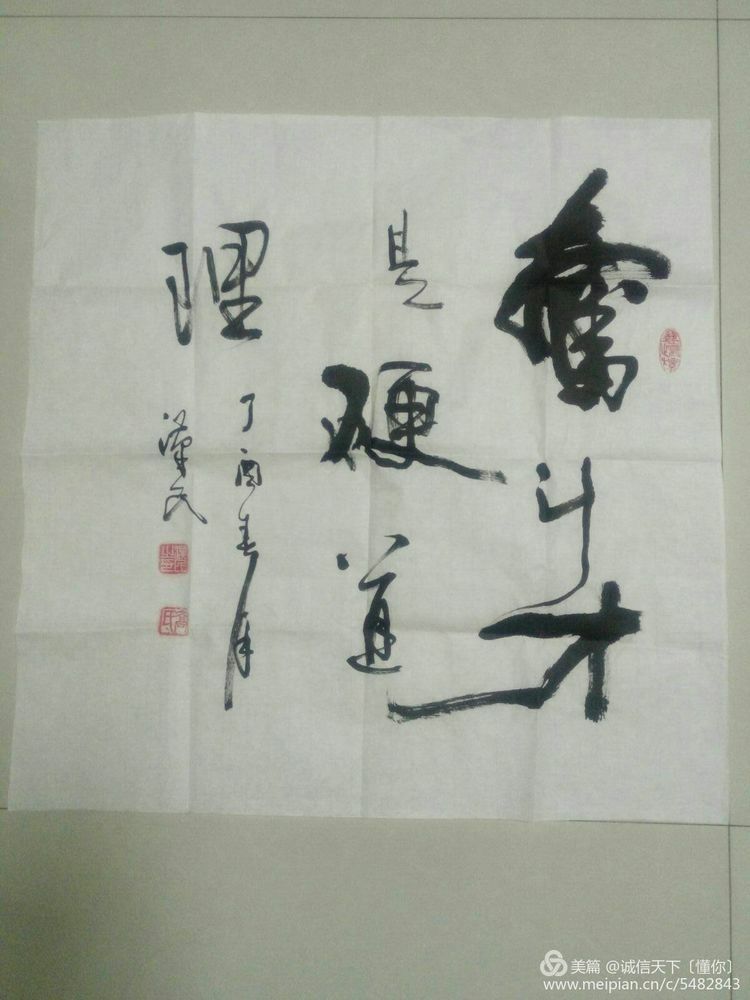 奮斗才
是硬道
理
丁酉春月
漢民
美篇 @诚信天下〔懂你〕
www.meipian.cn/c/5482843